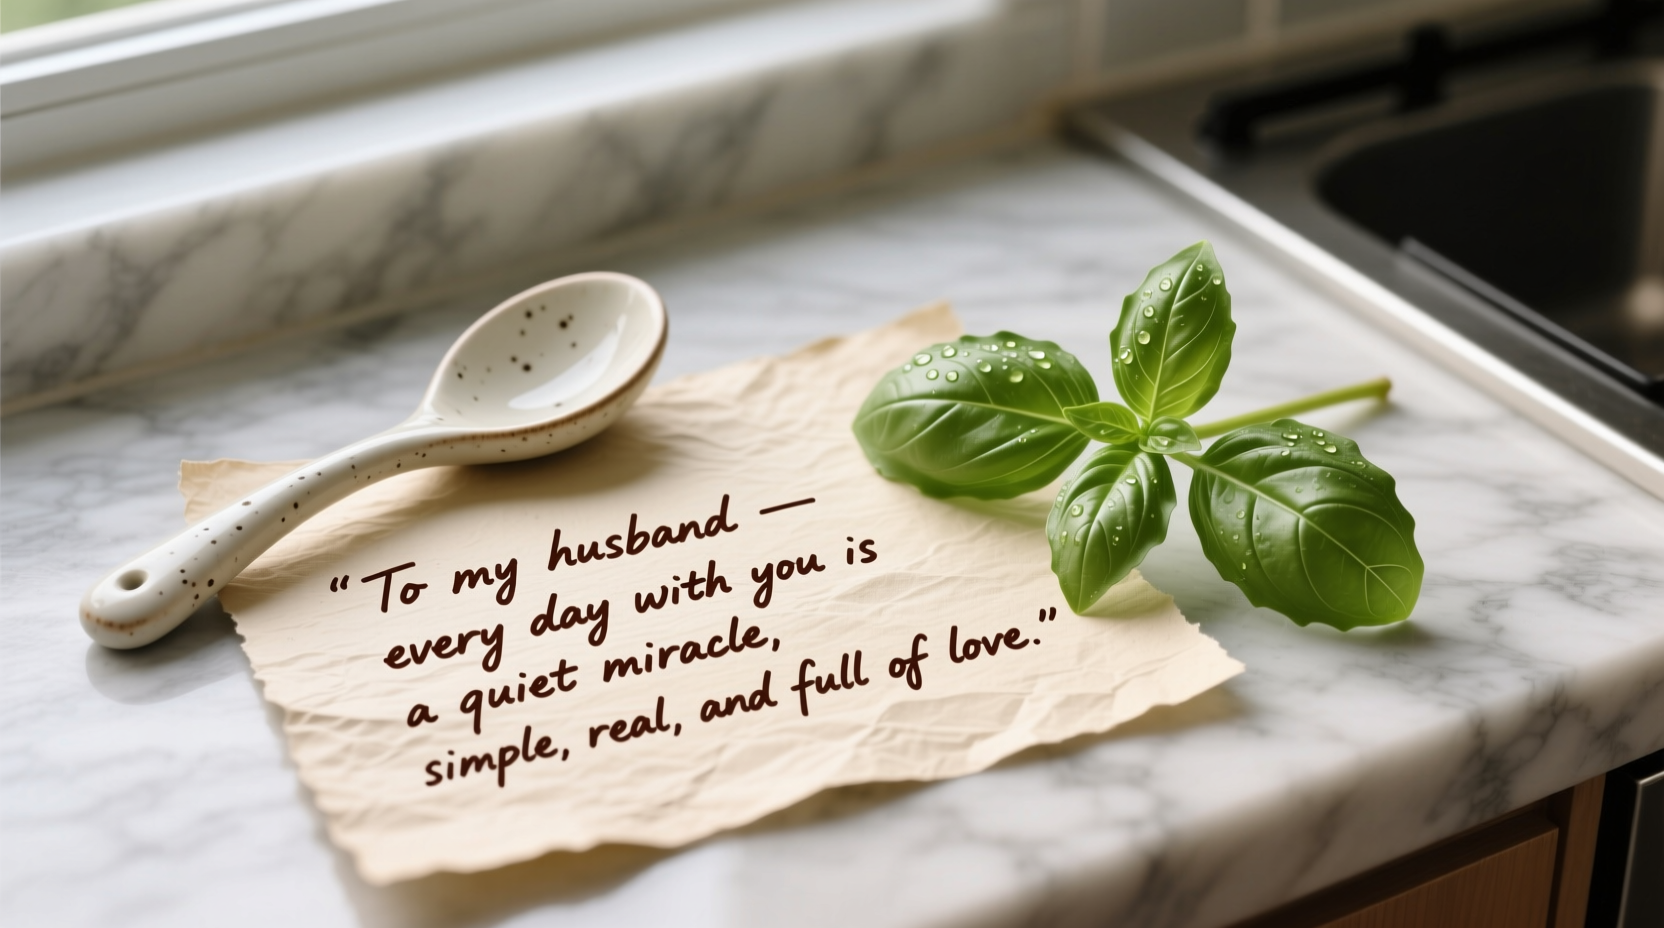 “To my husband —
every day with you is
a quiet miracle,
simple, real, and full of love.”